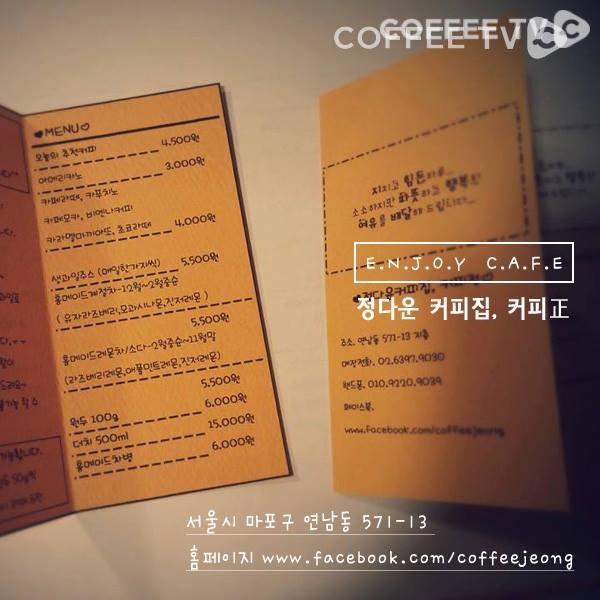 COFFEE TV
COFFEE TV
♥MENU♡
오늘의 추천커피 4,500원
아메리카노 3,000원
카페라떼, 카푸치노
카페모카, 비엔나커피
카라멜마끼아또, 초코라떼 4,000원
생과일주스 (매일한가지씩) 5,500원
홈메이드계절차~12월~2월중순
(유자라즈베리,모과시나몬,진저레몬)
5,500원
홈메이드레몬차/소다~2월중순~11월말
(라즈베리레몬,애플민트레몬,진저레몬)
5,500원
원두 100g 6,000원
더치 500ml 15,000원
홈메이드차병 6,000원
지치고 힘든하루...
소소하지만 따뜻하고 행복한
여유를 배달해 드립니다...
E.N.J.O.Y C.A.F.E
정다운커피집, 커피
정다운 커피집, 커피正
주소. 연남동 571-13 지층
매장전화. 02.6397.9030
핸드폰. 010.9220.9039
페이스북.
www.facebook.com/coffeejeong
서울시 마포구 연남동 571-13
홈페이지 www.facebook.com/coffeejeong